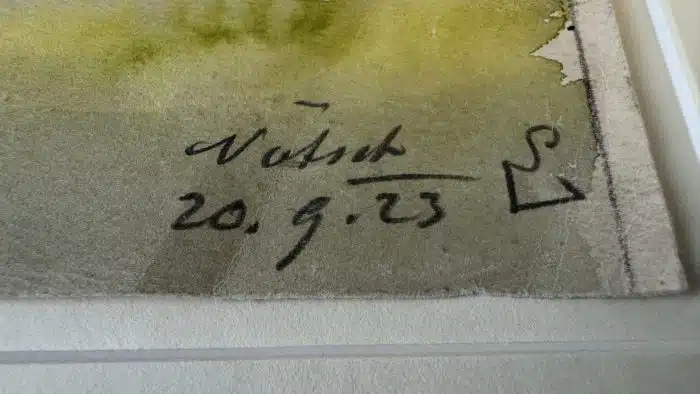 Nötsch
20. 9. 23